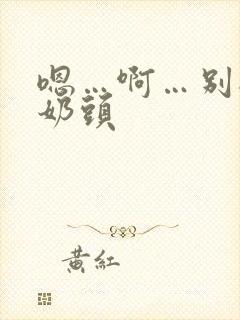 嗯…啊…别
奶頭
黃紅